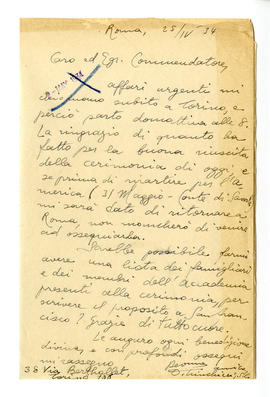 Roma, 25/IV 34
Caro ed Egr. Commendatore,
affari urgenti mi
chiamano subito a Torino, e
perciò parto domattina alle 8.
La ringrazio di quanto ha
fatto per la buona riuscita
della cerimonia di oggi e
se prima di ripartire per l'A=
merica (31 Maggio - Conte di Savoia)
mi sarà dato di ritornare a
Roma, non mancherò di venire
ad ossequiarla.
Sarebbe possibile farmi
avere una lista dei famigliari
e dei membri dell'Accademia
presenti alla cerimonia, per
scrivere il proposito a San Fran=
cisco? Grazie di tutto cuore.
Le auguro ogni benedizione
divina, e con profondi ossequi
mi rassegno
38 Via Berthollet,
Torino